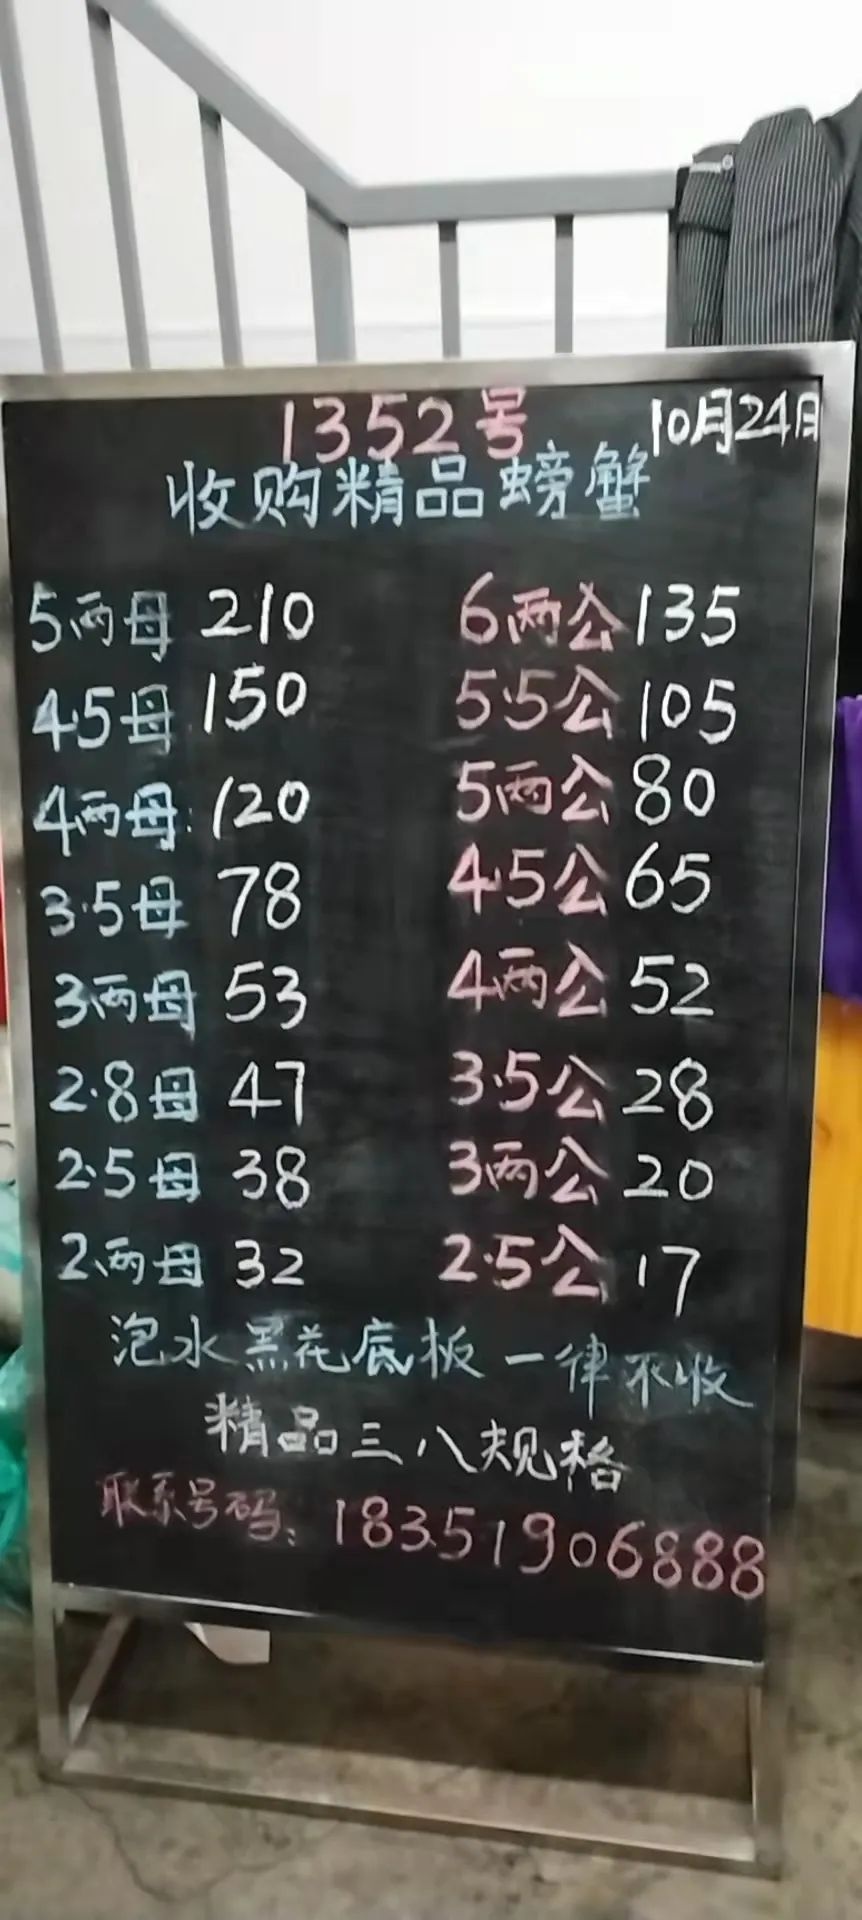 1352号 10月24日
收购精品螃蟹
5两母 210 6两公 135
4.5母 150 5.5公 105
4两母 120 5两公 80
3.5母 78 4.5公 65
3两母 53 4两公 52
2.8母 47 3.5公 28
2.5母 38 3两公 20
2两母 32 2.5公 17
泡水黑花底板一律不收
精品三八规格
联系号码：18351906888